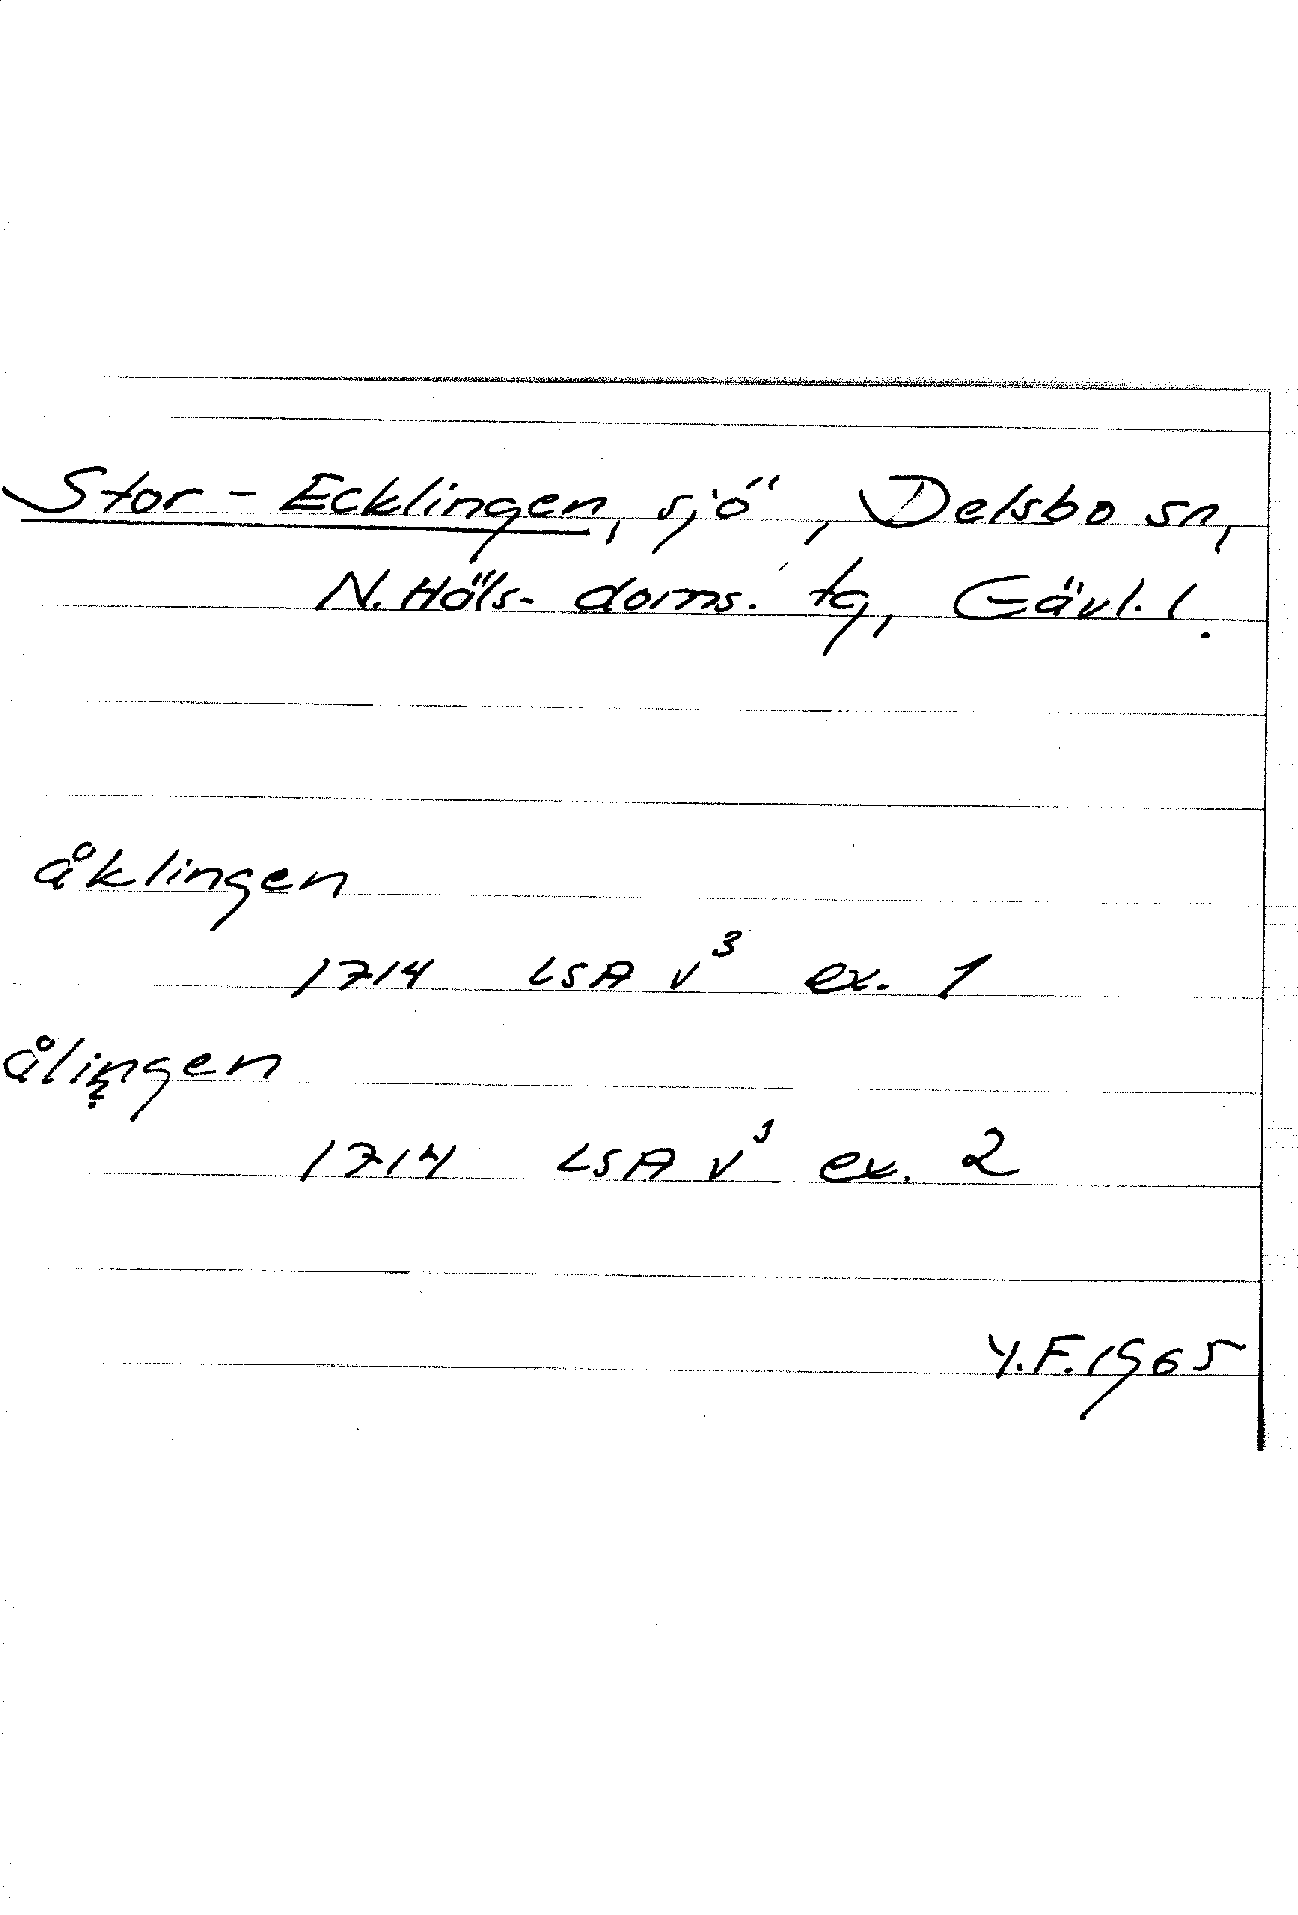 Stor-Ecklingen, sjö, Delsbo sn,
N. Häls. doms. tg, Gävl. l.
åklingen
1714 LSA V³ ex. 1
ålingen
?
1714 LSA V³ ex. 2
Y.F. 1965